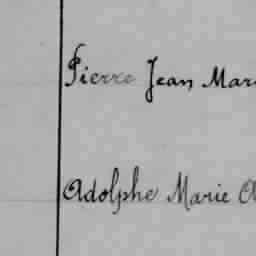 Pierre Jean Mar
Adolphe Marie